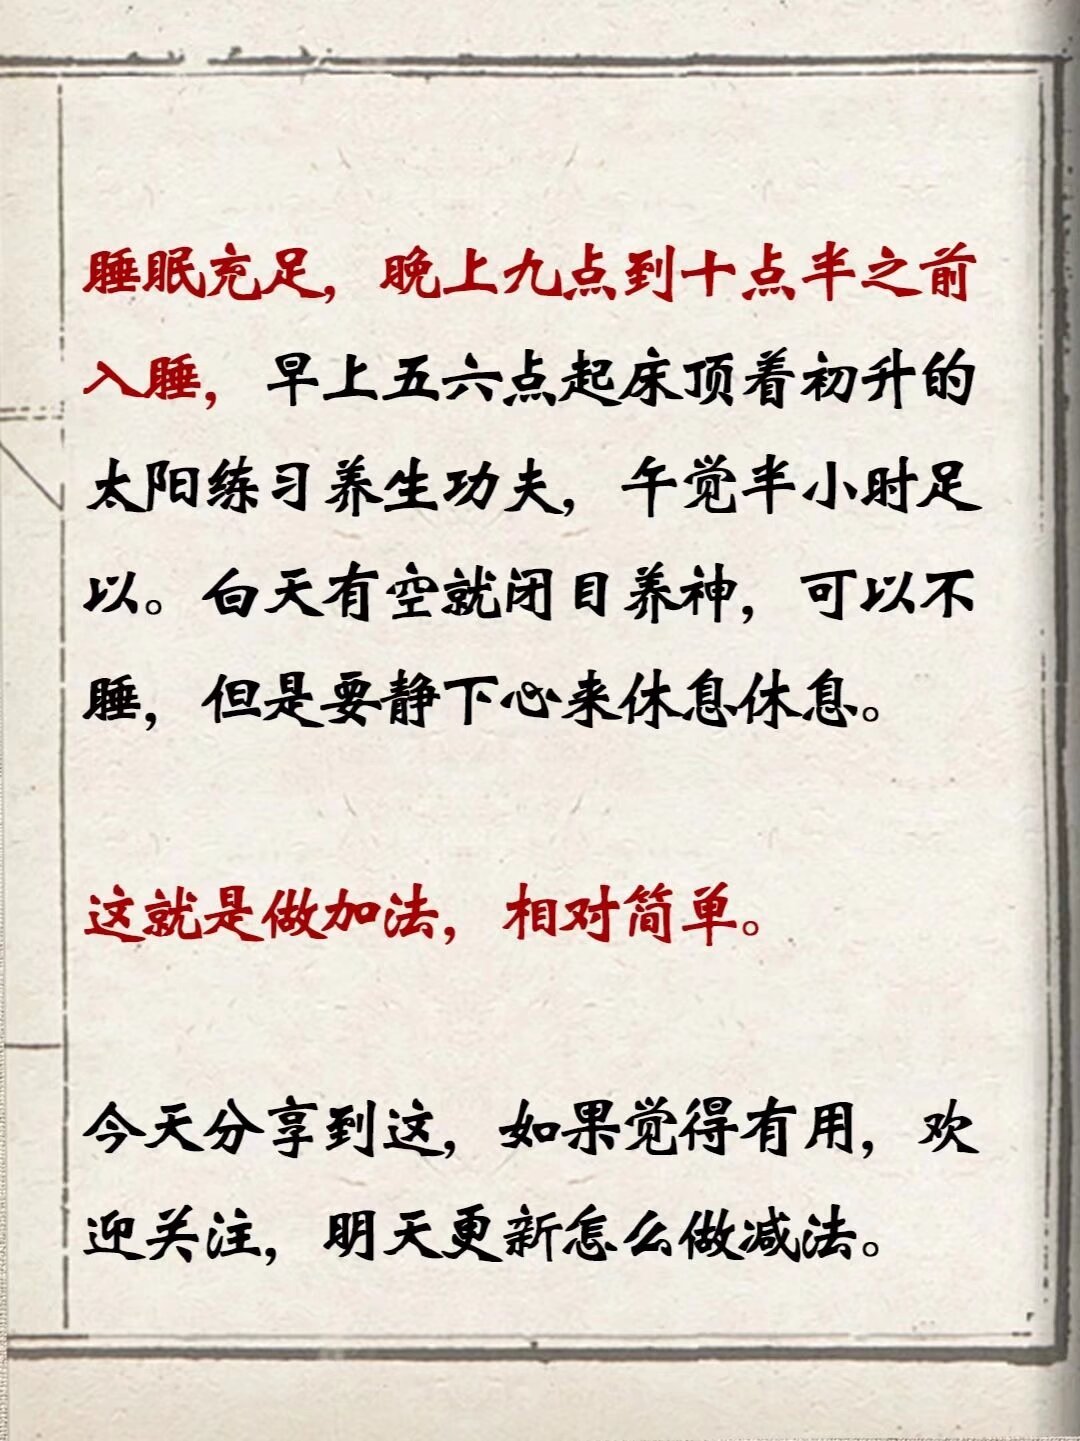 睡眠充足，晚上九点到十点半之前
入睡，早上五六点起床顶着初升的
太阳练习养生功夫，午觉半小时足
以。白天有空就闭目养神，可以不
睡，但是要静下心来休息休息。
这就是做加法，相对简单。
今天分享到这，如果觉得有用，欢
迎关注，明天更新怎么做减法。